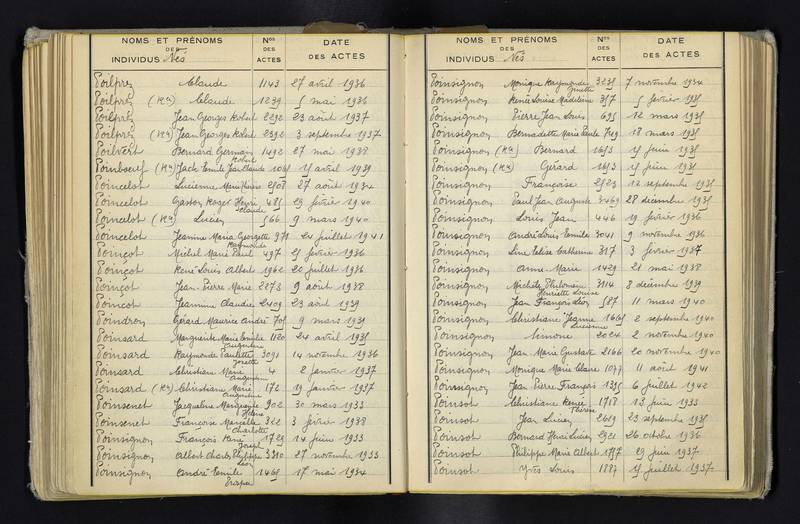 NOMS ET PRÉNOMS
DES
INDIVIDUS Nés
Nos
DES
ACTES
DATE
DES ACTES
Poilpré Claude 1143 27 avril 1936
Poilpré (Rn) Claude 1239 5 mai 1936
Poilpré Jean Georges Robert 2292 23 août 1937
Poilpré (Rn) Jean Georges Robert 2392 3 septembre 1937
Poilvert Bernard Germain 1492 27 mai 1938
Robert
Poinboeuf (Rn) Jack Emile Jean Claude 1065 15 avril 1939
Poincelot Lucienne 2508 27 août 1934
Poincelot Gaston Roger Henri 485 29 février 1940
Claude
Poincelot (Rn) Lucien 566 9 mars 1940
Poincelot Jeanine Maria Georgette 971 24 juillet 1941
Raymonde
Poinçot Michel Marie Paul 497 25 février 1936
Poinçot René Louis Albert 1962 20 juillet 1936
Poinçot Jean Pierre Marie 2273 9 août 1938
Poinçot Jeannine Claudie 2409 23 août 1939
Poindron Gérard Maurice André 705 9 mars 1939
Poinsard Marguerite Marie Emilie 1120 24 avril 1935
Augustine
Poinsard Raymonde Paulette 3091 14 novembre 1936
Josette
Poinsard Christiane Marie 4 2 janvier 1937
Augustine
Poinsard (Rn) Christiane Marie 172 19 janvier 1937
Augustine
Poinsenet Jacqueline Marguerite 902 30 mars 1933
Hélène
Poinsenet Françoise Marcelle 322 3 février 1938
Charlotte
Poinsignon François René 1729 14 juin 1933
Joseph
Poinsignon Albert Charles Philippe 3310 27 novembre 1933
Léon
Poinsignon André Emile 1465 17 mai 1934
Prosper
NOMS ET PRÉNOMS
DES
INDIVIDUS Nés
Nos
DES
ACTES
DATE
DES ACTES
Poinsignon Monique Raymonde 3235 7 novembre 1934
Ginette
Poinsignon Renée Louise Madeleine 357 5 février 1935
Poinsignon Pierre Jean Louis 695 12 mars 1935
Poinsignon Bernadette Marie Paule 749 18 mars 1935
Poinsignon (Rn) Bernard 1653 15 juin 1935
Poinsignon (Rn) Gérard 1653 15 juin 1935
Poinsignon Françoise 2523 12 septembre 1935
Poinsignon Paul Jean Auguste 3469 28 décembre 1935
Poinsignon Louis Jean 446 19 février 1936
Poinsignon André Louis Emile 3041 9 novembre 1936
Poinsignon Line Elise Catherine 317 3 février 1937
Poinsignon Anne-Marie 1429 21 mai 1938
Poinsignon Michèle Philomène 3114 8 décembre 1939
Henriette Louise
Poinsignon Jean François Léon 587 11 mars 1940
Poinsignon Christiane Jeanne 1665 2 septembre 1940
Lucienne
Poinsignon Simone 2024 2 novembre 1940
Poinsignon Jean Marie Gustave 2166 20 novembre 1940
Poinsignon Monique Marie Claire 1077 11 août 1941
Poinsignon Jean Pierre François 1395 6 juillet 1942
Poinsot Christiane Renée 1718 13 juin 1933
Thérèse
Poinsot Jean Lucien 2619 23 septembre 1935
Poinsot Bernard Henri Lucien 2921 26 octobre 1936
Poinsot Philippe Marie Albert 1757 29 juin 1937
Poinsot Yves Louis 1887 15 juillet 1937